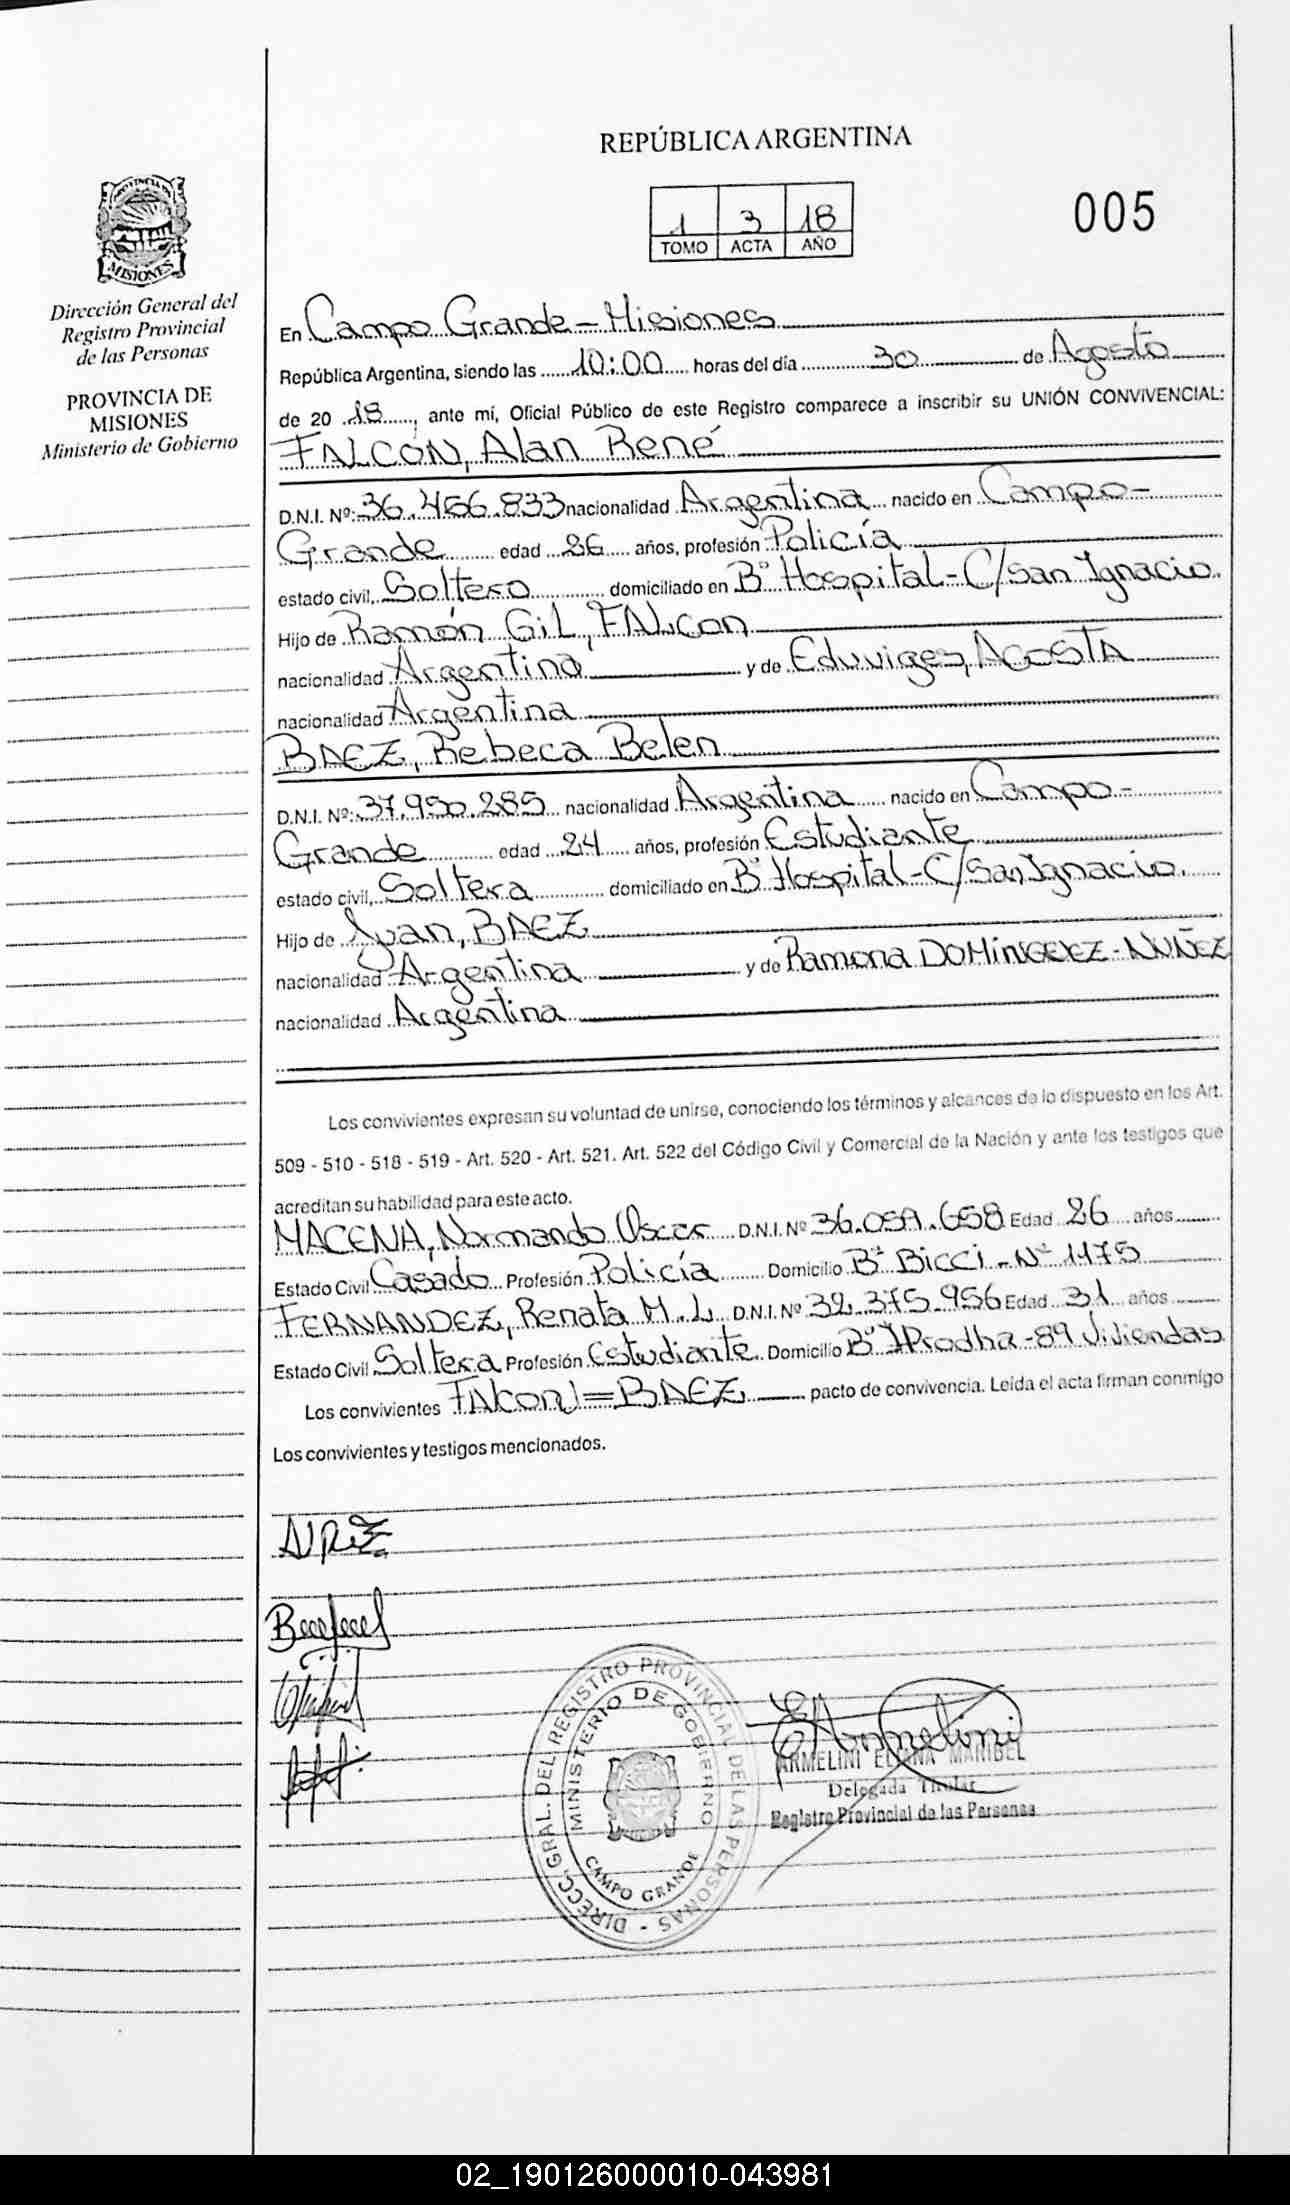 REPÚBLICA ARGENTINA
1 3 18
TOMO ACTA AÑO
005
PROVINCIA DE MISIONES
Dirección General del
Registro Provincial
de las Personas
PROVINCIA DE
MISIONES
Ministerio de Gobierno
En Campo Grande - Misiones
República Argentina, siendo las 10:00 horas del día 30 de Agosto
de 20 18, ante mí, Oficial Público de este Registro comparece a inscribir su UNIÓN CONVIVENCIAL:
FALCON, Alan René
D.N.I. Nº: 36.456.833 nacionalidad Argentina nacido en Campo-
Grande edad 26 años, profesión Policía
estado civil, Soltero domiciliado en Bº Hospital - C/San Ignacio.
Hijo de Ramón Gil, FALcon
nacionalidad Argentina y de Eduviges, AGOSTA
nacionalidad Argentina
BAEZ, Rebeca Belen
D.N.I. Nº: 37.950.285 nacionalidad Argentina nacido en Campo-
Grande edad 24 años, profesión Estudiante
estado civil, Soltera domiciliado en Bº Hospital - C/San Ignacio.
Hijo de Juan, BAEZ
nacionalidad Argentina y de Ramona DOMINGUEZ - NUÑEZ
nacionalidad Argentina
Los convivientes expresan su voluntad de unirse, conociendo los términos y alcances de lo dispuesto en los Art.
509 - 510 - 518 - 519 - Art. 520 - Art. 521. Art. 522 del Código Civil y Comercial de la Nación y ante los testigos que
acreditan su habilidad para este acto.
MACENA, Normando Oscar D.N.I. Nº 36.059.658 Edad 26 años
Estado Civil Casado Profesión Policía Domicilio Bº Bicci - Nº 1175
FERNANDEZ, Renata M. L. D.N.I. Nº 32.375.956 Edad 31 años
Estado Civil Soltera Profesión Estudiante. Domicilio Bº IProdha - 89 Viviendas
Los convivientes FAlcoN = BAEZ pacto de convivencia. Leída el acta firman conmigo
Los convivientes y testigos mencionados.
DIRECC. GRAL. DEL REGISTRO PROVINCIAL DE LAS PERSONAS -
MINISTERIO DE GOBIERNO
CAMPO GRANDE
EArmelini
ARMELINI ELIANA MARIBEL
Delegada Titular
Registro Provincial de las Personas
02_190126000010-043981